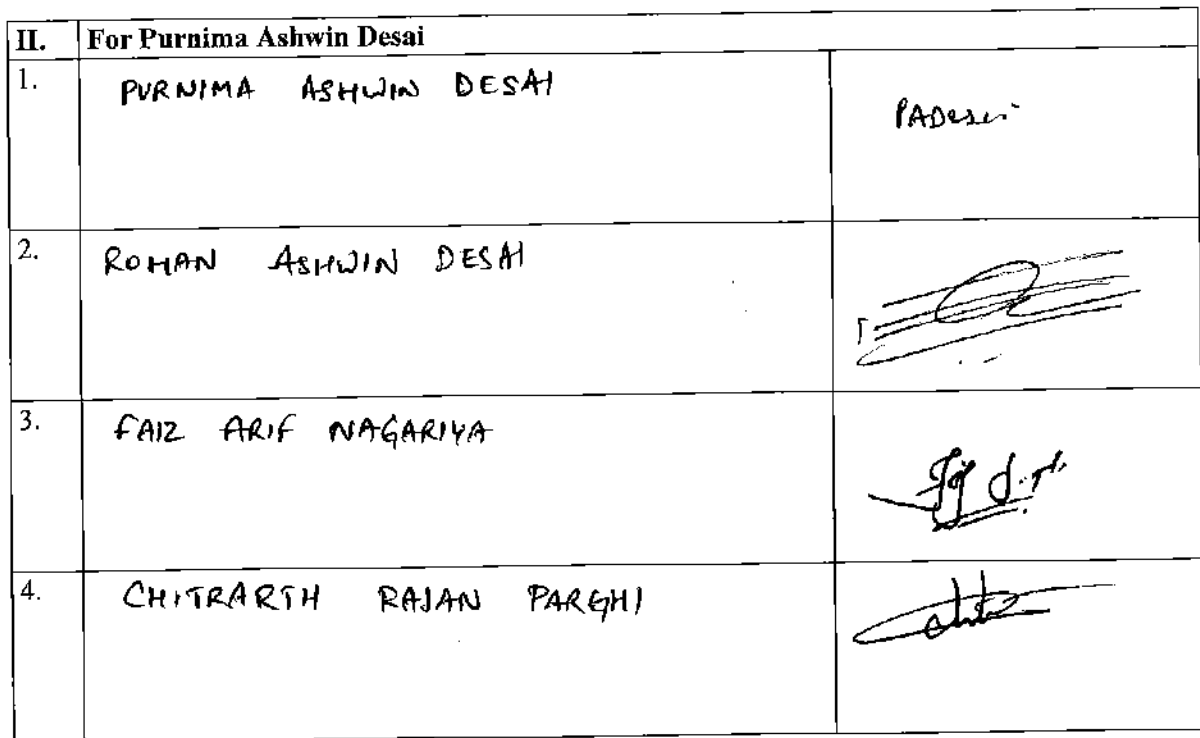 II. For Purnima Ashwin Desai
1. PURNIMA ASHWIN DESAI
PADesai
2. ROHAN ASHWIN DESAI
3. FAIZ ARIF NAGARIYA
4. CHITRARTH RAJAN PARGHI